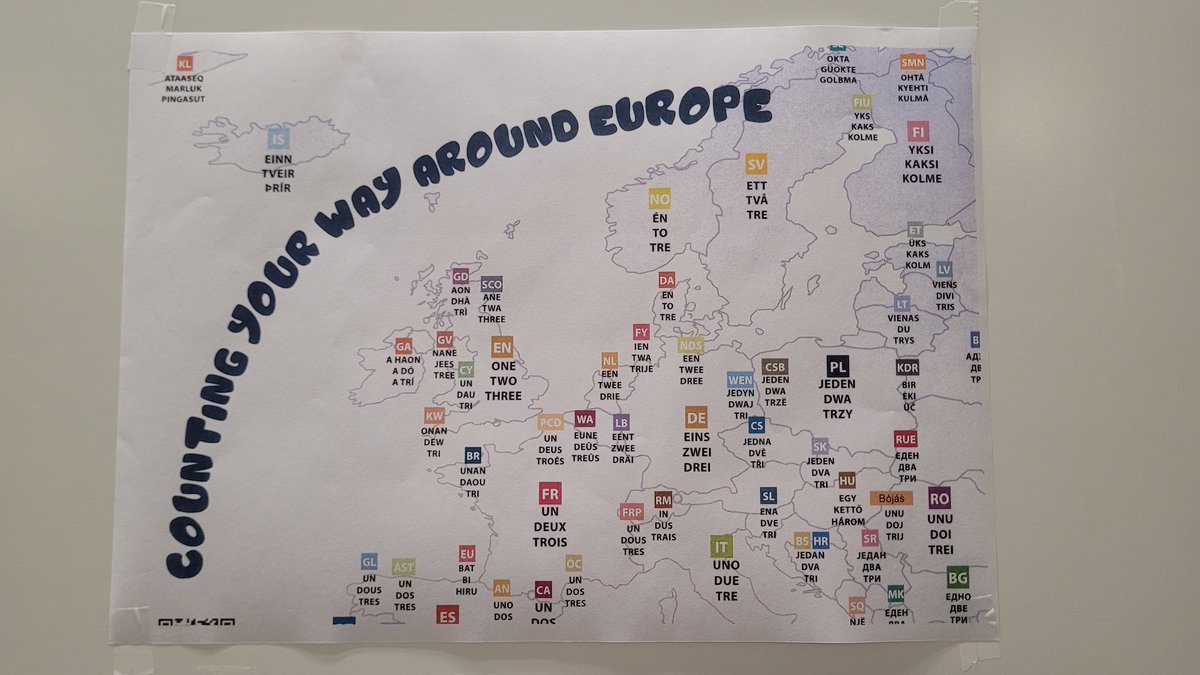 COUNTING YOUR WAY AROUND EUROPE
KL
ATAASEQ
MARLUK
PINGASUT
IS
EINN
TVEIR
ÞRÍR
OKTA
GUOKTE
GOLBMA
SMN
OHTÂ
KYEHTI
KULMÂ
FIU
YKS
KAKS
KOLME
FI
YKSI
KAKSI
KOLME
SV
ETT
TVÅ
TRE
NO
ÉN
TO
TRE
ET
ÜKS
KAKS
KOLM
LV
VIENS
DIVI
TRIS
LT
VIENAS
DU
TRYS
GD
AON
DHÀ
TRÌ
SCO
ANE
TWA
THREE
DA
EN
TO
TRE
GA
A HAON
A DÓ
A TRÍ
GV
NANE
JEES
TREE
CY
UN
DAU
TRI
EN
ONE
TWO
THREE
FY
IEN
TWA
TRIJE
NL
EEN
TWEE
DRIE
NDS
EEN
TWEE
DREE
WEN
JEDYN
DWAJ
TRI
CSB
JEDEN
DWA
TRZË
PL
JEDEN
DWA
TRZY
KDR
BIR
EKI
ÜČ
KW
ONAN
DEW
TRI
PCD
UN
DEUS
TROÉS
WA
EUNE
DEÛS
TREÛS
LB
EENT
ZWEE
DRÄI
DE
EINS
ZWEI
DREI
CS
JEDNA
DVĚ
TŘI
SK
JEDEN
DVA
TRI
RUE
ЄДЕН
ДВА
ТРИ
BR
UNAN
DAOU
TRI
FR
UN
DEUX
TROIS
FRP
UN
DOUS
TRES
RM
IN
DUS
TRAIS
SL
ENA
DVE
TRI
HU
EGY
KETTŐ
HÁROM
Bójáś
UNU
DOJ
TRIJ
RO
UNU
DOI
TREI
IT
UNO
DUE
TRE
BS HR
JEDAN
DVA
TRI
SR
ЈЕДАН
ДВА
ТРИ
BG
ЕДНО
ДВЕ
ТРИ
GL
UN
DOUS
TRES
AST
UN
DOS
TRES
EU
BAT
BI
HIRU
AN
UNO
DOS
CA
UN
DOS
OC
UN
DOS
TRES
ES
SQ
NJË
MK
ЕДЕН
ДВА